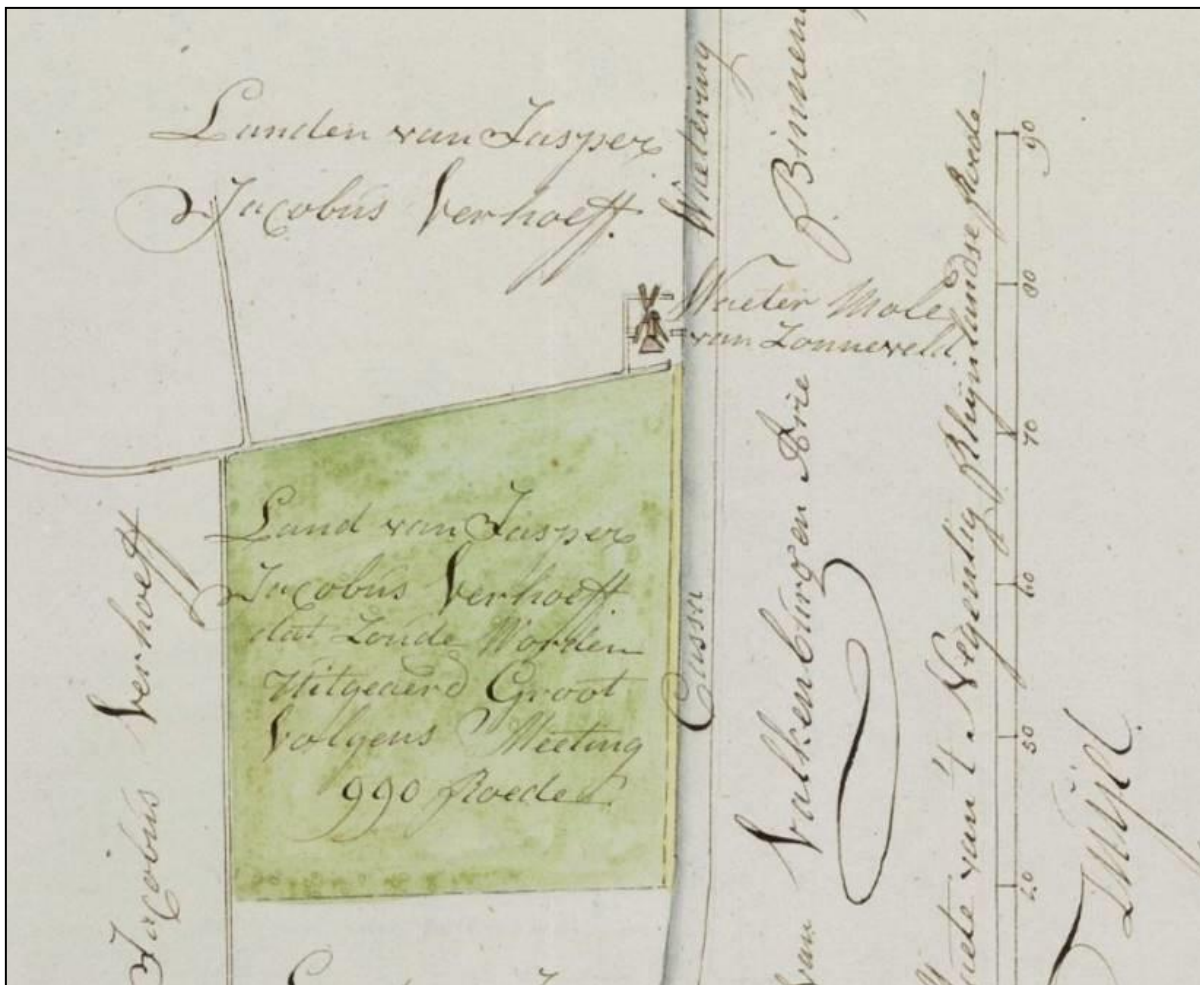 Landen van Jasper
Jacobus Verhoeff.
Watering
Binnen
Waeter Mole
van Zonneveld.
Land van Jasper
Jacobus Verhoeff.
dat Zoude Worden
Uitgeaerd Groot
Volgens Meeting
990 Roeden.
Jacobus Verhoeff
van Valkenburg en Arie
van 't Negentig Rhijnlandse Roede
90
80
70
60
50
40